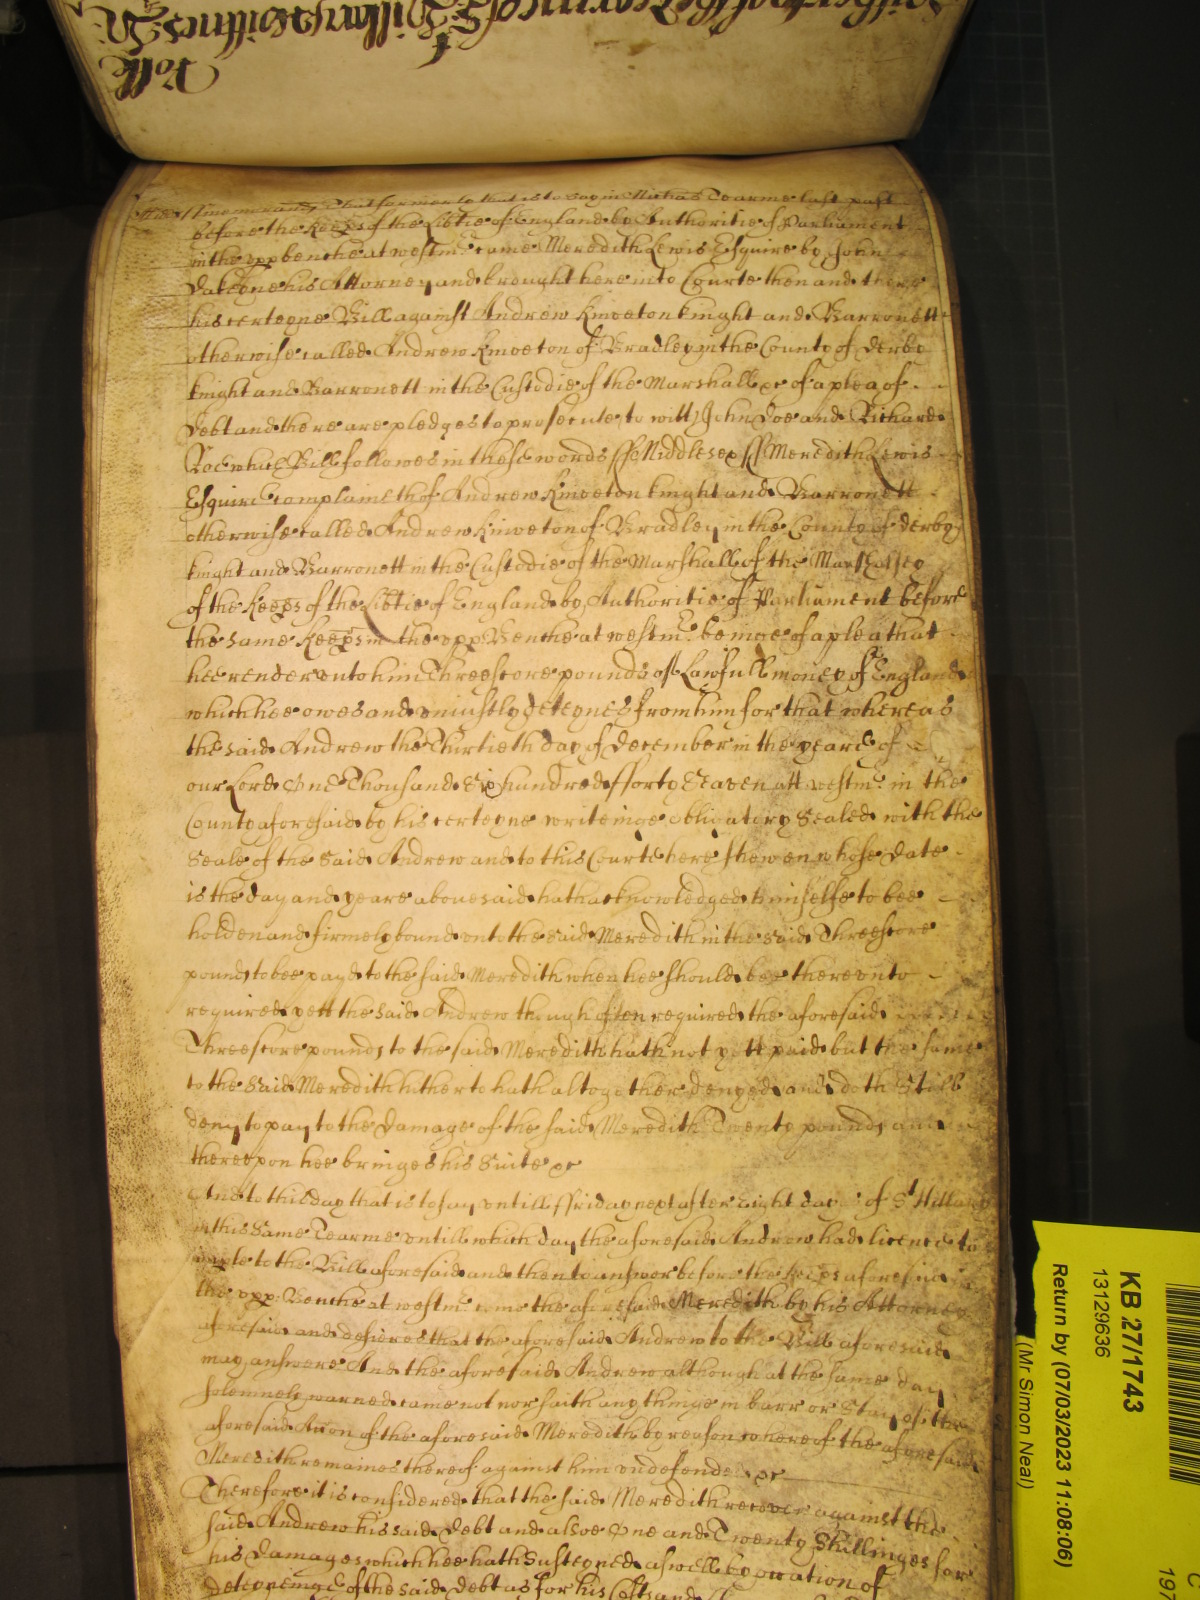 Rolle
Midds // Memorand That formerly that is to say in Michas Tearme last past
before the Keeps of the Libtie of England by Authoritie of Parliament
in the upp benche at westm came Meredith Lewis Esquire by John
his Attorney and brought here into Courte then and there
his certeyne Bill against Andrew Kniveton knight and Barronett
otherwise called Andrew Kniveton of Bradley in the County of Derby
knight and Barronett in the Custodie of the Marshall &c of a plea of
Debt and there are pledges to prosecute to witt John Doe and Richard
Roe which Bill followes in these words ss Middlesex ss Meredith Lewis
Esquire complaineth of Andrew Kniveton knight and Barronett
otherwise called Andrew Kniveton of Bradley in the County of Derby
knight and Barronett in the Custodie of the Marshall of the Marshalsey
of the Keeps of the Libtie of England by Authoritie of Parliament before
the same Keeps in the upp Benche at westm beinge of a plea that
hee render unto him Threescore pounds of Lawfull money of England
which hee owes and uniustly deteynes from him for that whereas
the said Andrew the Thirtieth day of December in the yeare of
our Lord One Thousand Six hundred fforty Seaven att westm in the
County aforesaid by his certeyne writeinge obligatory Sealed with the
Seale of the said Andrew and to this Courte here shewen whose date
is the day and yeare abovesaid hath acknowledged himselfe to bee
holden and firmely bound unto the said Meredith in the said Threescore
pounds to bee payd to the said Meredith when hee should bee thereunto
required yett the said Andrew though often required the aforesaid
Threescore pounds to the said Meredith hath not yett paid but the same
to the said Meredith hitherto hath altogether denyed and doth still
deny to pay to the damage of the said Meredith Twenty pounds and
thereupon hee bringes his Suite &c
And to this day that is to say untill ffriday next after eight dayes of St Hillary
in this same Tearme untill which day the aforesaid Andrew had licence to
imple to the Bill aforesaid and then to answer before the Keeps aforesaid in
the upp Benche at westm came the aforesaid Meredith by his Attorney
aforesaid and desires that the aforesaid Andrew to the Bill aforesaid
may answere And the aforesaid Andrew although at the same day
solemnely warned came not nor saith any thinge in barr or Stay of the
aforesaid Accon of the aforesaid Meredith by reason whereof the aforesaid
Meredith remaines thereof against him undefended &c
Therefore it is considered that the said Meredith recover against the
said Andrew his said Debt and alsoe One and Twenty Shillinges for
his Damages which hee hath Susteyned aswell by occation of
deteyneinge of the said debt as for his Costs and
KB 27/1743
13129636
Return by (07/03/2023 11:08:06)
(Mr Simon Neal)
C
197